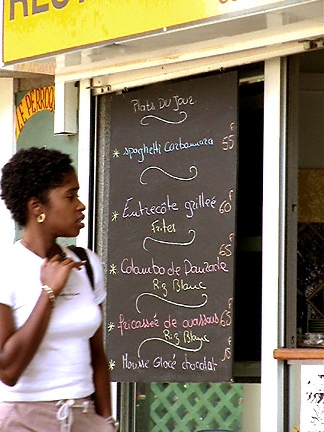 REST
LE PERROQ
Plats Du Jour
* spaghetti Carbannara 55F
* Entrecôte grilleé 60F
Frites
* Colombo de Daurade 65F
Riz Blanc
* fricassée de ouassous 65F
Riz Blanc
* Mousse Glacé chocolat